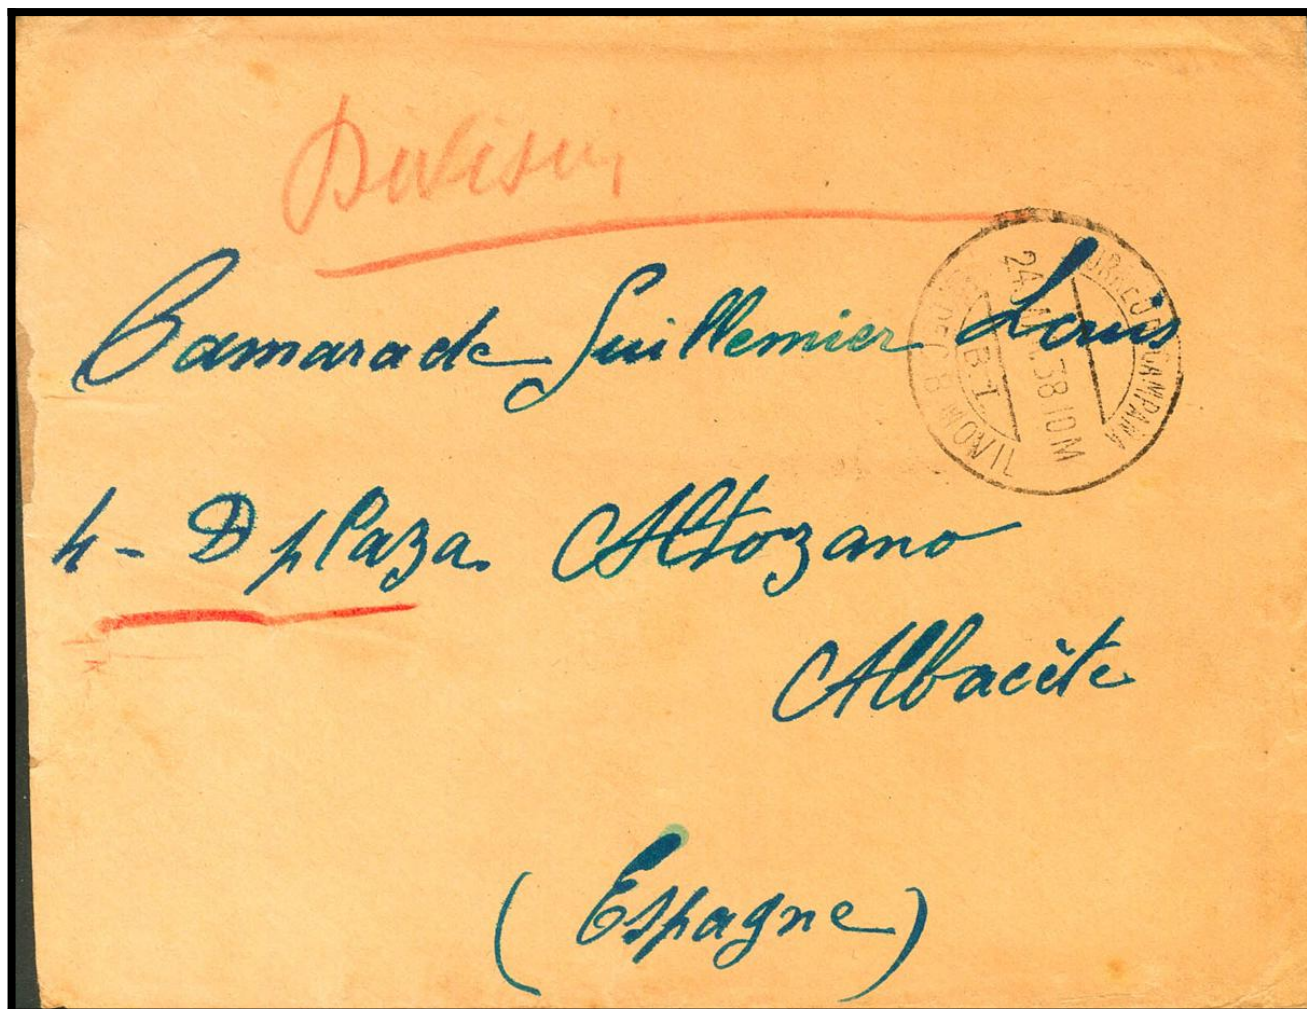 Division
Camarade Guillemier Louis
4 - D plaza Altozano
Albacète
(Espagne)
CORREO DE CAMPAÑA
24. .38 10M
B.I.
MOVIL